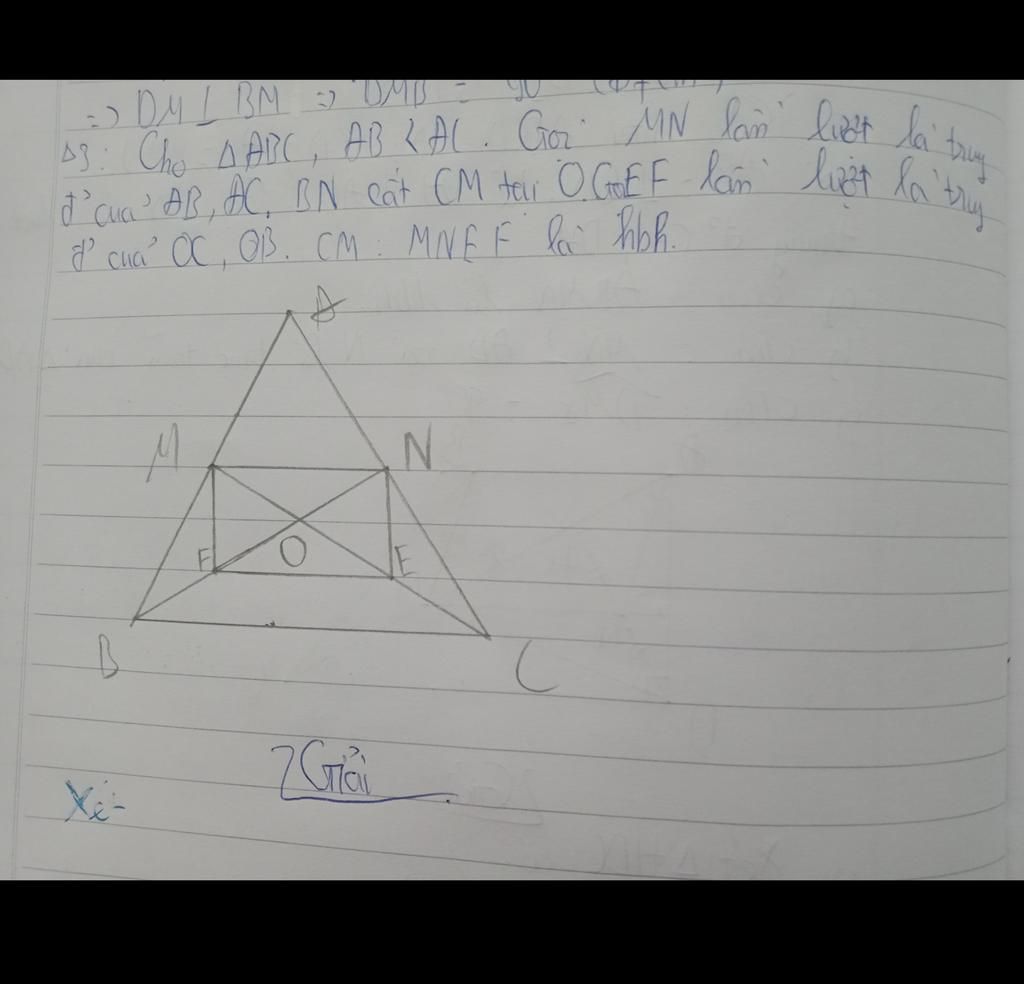 => DM ⊥ BM => DMB = 90
Δ3: Cho ΔABC, AB < AC. Gọi MN lần lượt là trung
đ' của AB, AC, BN cắt CM tại O. Gọi EF lần lượt là trung
đ' của OC, OB. CM: MNEF là hbh.
A
M N
F O E
B
C
Giải
Xé